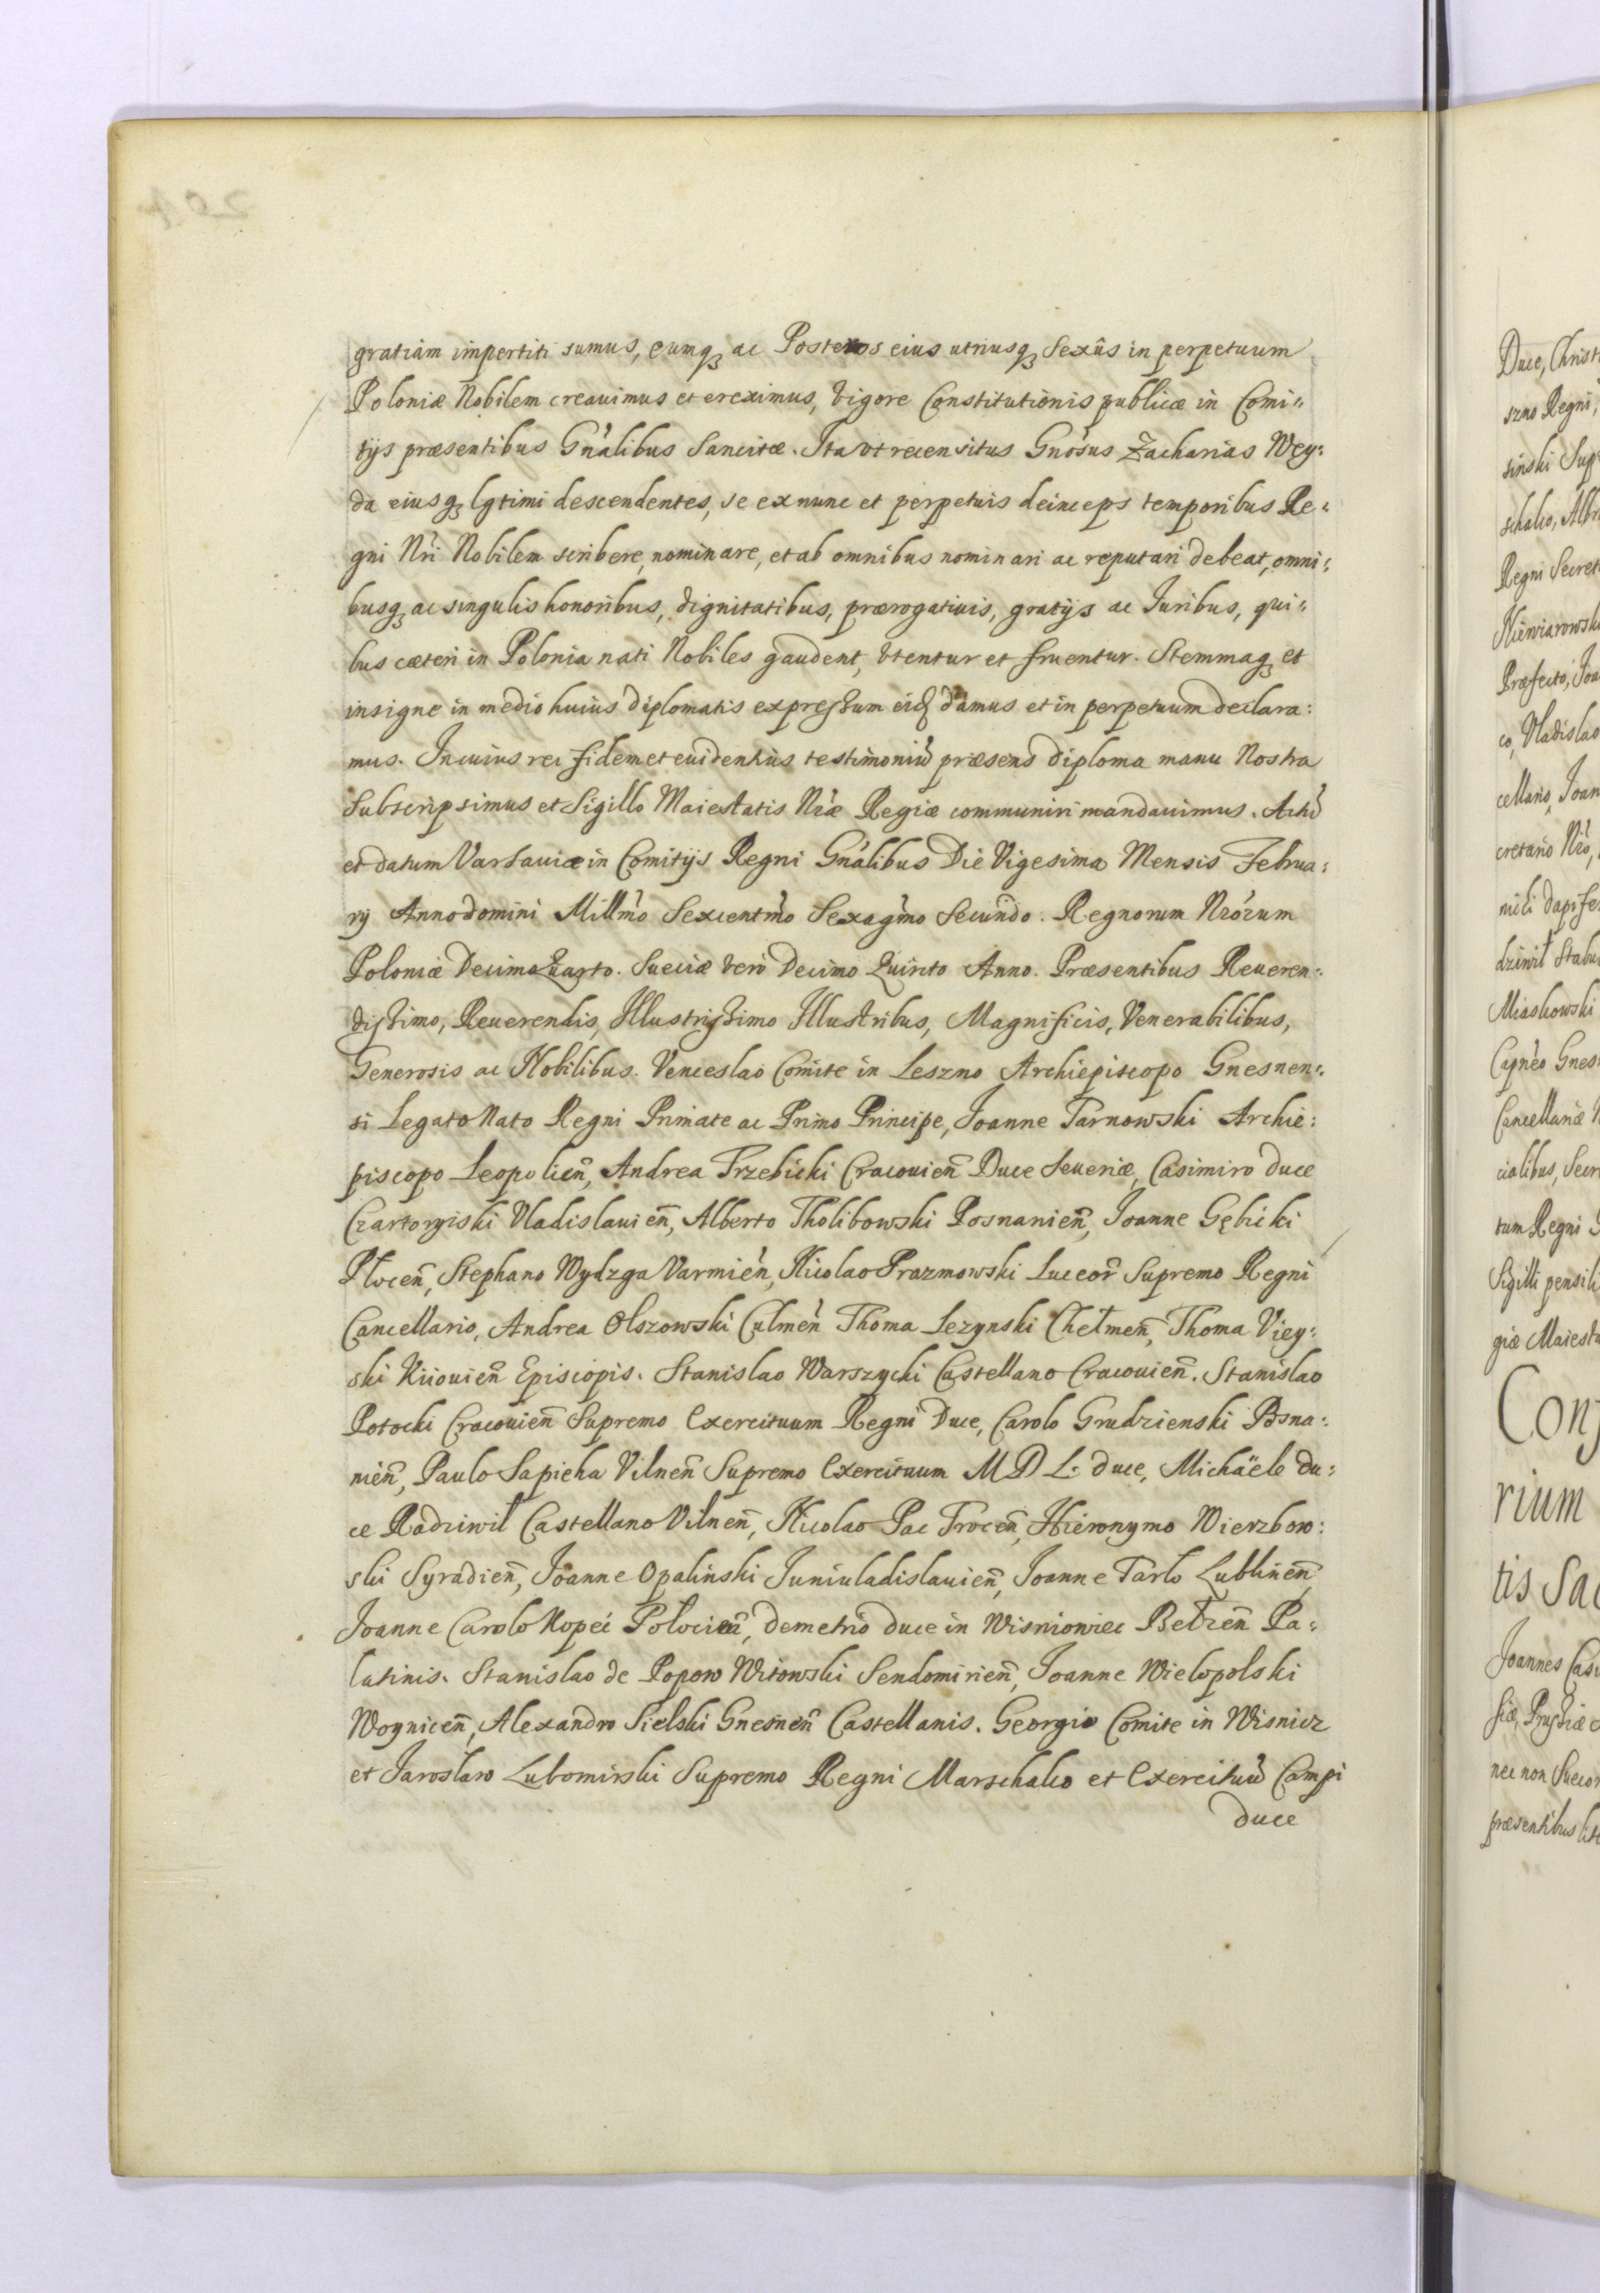 gratiam impertiti sumus, eumq; ac Posteros eius utriusq; Sexûs in perpetuum
Poloniæ Nobilem creauimus et ereximus, vigore Constitutionis publicæ in Comi:
tijs præsentibus Gnãlibus Sancitæ. Ita vt recensitus Gnõsus Zacharias Wey:
da eiusq; lgtimi descendentes, se ex nunc et perpetuis deinceps temporibus Re:
gni Nri Nobilem scribere, nominare, et ab omnibus nominari ac reputari debeat, omni:
busq; ac singulis honoribus, dignitatibus, prærogatiuis, gratijs ac Juribus, qui:
bus cæteri in Polonia nati Nobiles gaudent, vtentur et fruentur. Stemmaq; et
insigne in medio huius diplomatis expressum eid damus et in perpetuum declara:
mus. In cuius rei fidem et euidentius testimoniũ præsens diploma manu Nostra
Subscripsimus et Sigillo Maiestatis Nræ Regiæ communiri mandauimus. Actũ
et datum Varsauiæ in Comitijs Regni Gnãlibus Die Vigesima Mensis Februa:
rij Anno domini Millm̃o Sexcentm̃o Sexagm̃o Secundo. Regnorum Nrõrum
Poloniæ Decimo Quarto. Sueciæ verò Decimo Quinto Anno. Præsentibus Reueren:
dissimo, Reuerendis, Illustrissimo Illustribus, Magnificis, Venerabilibus,
Generosis ac Nobilibus. Venceslao Comite in Leszno Archiepiscopo Gnesnen:
si Legato Nato Regni Primate ac Primo Principe, Joanne Tarnowski Archie:
piscopo Leopolieñ, Andrea Trzebicki Cracouieñ Duce Seueriæ, Casimiro duce
Czartoryiski Vladislauieñ, Alberto Tholibowski Posnanieñ, Joanne Gębicki
Płoceñ, Stephano Wydzga Varmieñ, Nicolao Prazmowski Luceoř Supremo Regni
Cancellario, Andrea Olszowski Culmeñ Thoma Lezynski Chełmeñ, Thoma Viey:
ski Kiiouieñ Episcopis. Stanislao Warszycki Castellano Cracouieñ. Stanislao
Potocki Cracouieñ Supremo Exercituum Regni Duce, Carolo Grudzienski Posna:
nieñ, Paulo Sapieha Vilneñ Supremo Exercituum M D L: duce, Michäele du:
ce Radziwił Castellano Vilneñ, Nicolao Pac Troceñ, Hieronymo Wierzbow:
ski Syradieñ, Joanne Opalinski Juniuladislauieñ, Joanne Tarlo Lublineñ,
Joanne Carolo Kopeć Polocieñ, demetrio duce in Wisniowiec Bełzeñ Pa:
latinis. Stanislao de Popow Witowski Sendomirieñ, Joanne Wielopolski
Woyniceñ, Alexandro Sielski Gnesneñ Castellanis. Georgio Comite in Wisnicz
et Jaroslaw Lubomirski Supremo Regni Marschalco et Exercituũ Campi
duce
Duce, Christ
szno Regni,
sinski Sup
schalco, Alb
Regni Secret
Niewiarowsk
Præfecto, Joa
co, Vladislao
cellario, Joan
cretario Nrõ,
nieli dapife
dziwił Stabu
Miaskowski
Cancellariæ
cialibus, Secr
tum Regni
Sigilli pensili
giæ Maiesta
Conf
rium
tis Sac
Joannes Cas
siæ, Prussiæ
nec non Sueco
præsentibus lit